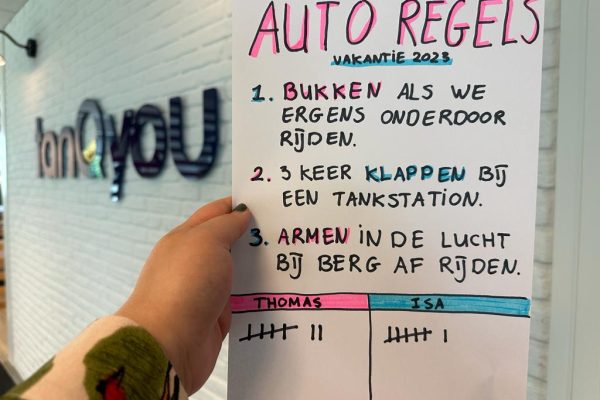 AUTO REGELS
VAKANTIE 2023
1. BUKKEN ALS WE
ERGENS ONDERDOOR
RIJDEN.
2. 3 KEER KLAPPEN BIJ
EEN TANKSTATION.
3. ARMEN IN DE LUCHT
BIJ BERG AF RIJDEN.
THOMAS ISA
tanQyou